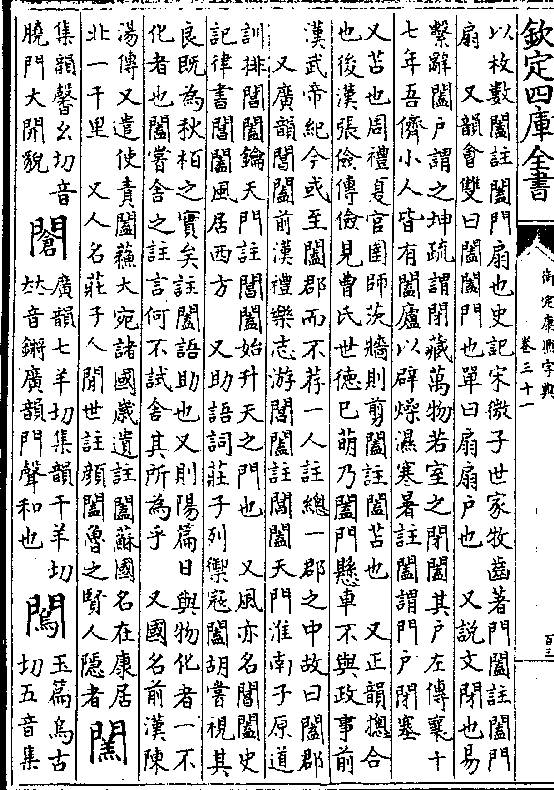 欽定四庫全書
御定康熙字典
卷三十一
百三
以枚數闔註闔門扇也史記宋微子世家牧齒著門闔註闔門
扇 又韻會雙曰闔闔門也單曰扇扇戶也 又說文閉也易
繫辭闔戶謂之坤疏謂閉藏萬物若室之閉闔其戶左傳襄十
七年吾儕小人皆有闔廬以辟燥濕寒暑註闔謂門戶閉塞
又苫也周禮夏官圉師茨牆則剪闔註闔苫也 又正韻摠合
也後漢張儉傳儉見曹氏世德已萌乃闔門懸車不與政事前
漢武帝紀今或至闔郡而不荐一人註總一郡之中故曰闔郡
又廣韻閶闔前漢禮樂志游閶闔註閶闔天門淮南子原道
訓排閶闔鑰天門註閶闔始升天之門也 又風亦名閶闔史
記律書閶闔風居西方 又助語詞莊子列禦寇闔胡嘗視其
良既為秋柏之實矣註闔語助也又則陽篇日與物化者一不
化者也闔嘗舍之註言何不試舍其所為乎 又國名前漢陳
湯傳又遣使責闔蘇大宛諸國歲遺註闔蘇國名在康居
北一千里 又人名莊子人閒世註顏闔魯之賢人隱者
集韻馨幺切音
曉門大開貌
廣韻七羊切集韻千羊切
𠀤音鏘廣韻門聲和也
玉篇烏古
切五音集